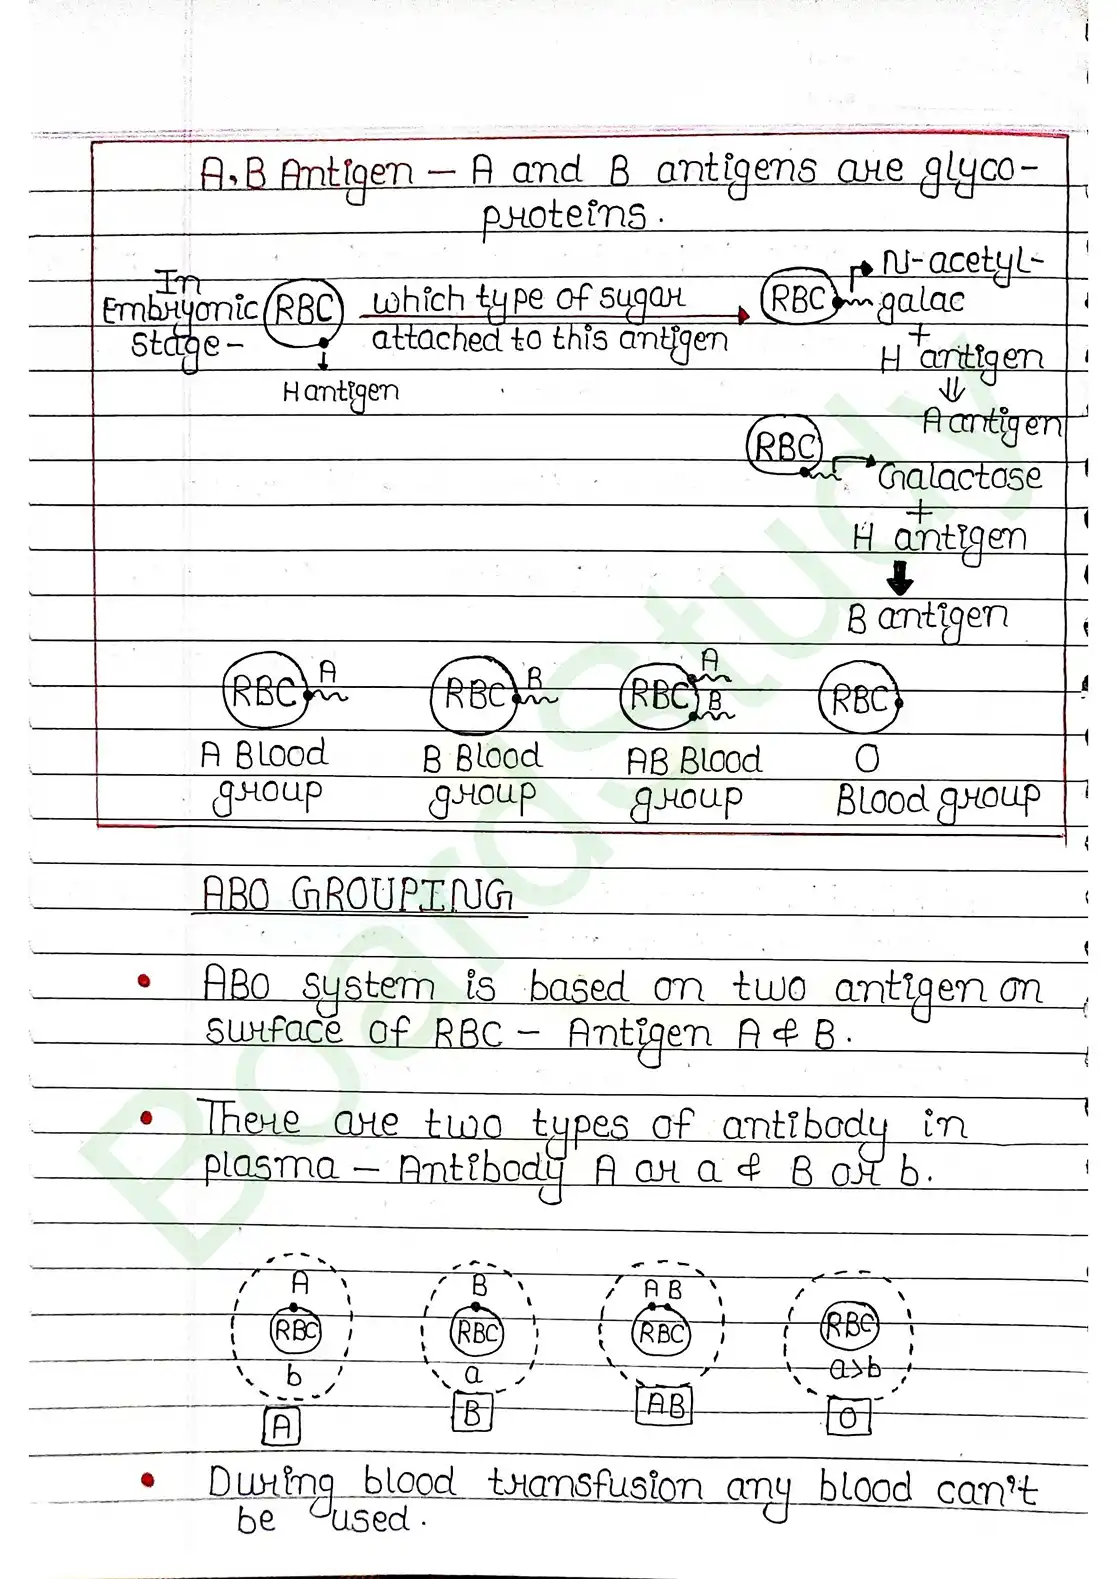 A,B Antigen – A and B antigens are glyco-
proteins.
In
Embryonic
Stage –
RBC
H antigen
which type of sugar
attached to this antigen
RBC
N-acetyl-
galac
+
H antigen
⇓
A antigen
RBC
Galactose
+
H antigen
B antigen
RBC A
RBC B
RBC A B
RBC
A Blood
group
B Blood
group
AB Blood
group
O
Blood group
ABO GROUPING
• ABO system is based on two antigen on
surface of RBC – Antigen A & B.
• There are two types of antibody in
plasma – Antibody A or a & B or b.
A
RBC
b
A
B
RBC
a
B
A B
RBC
AB
RBC
a>b
O
• During blood transfusion any blood can't
be used.
BoardStudy